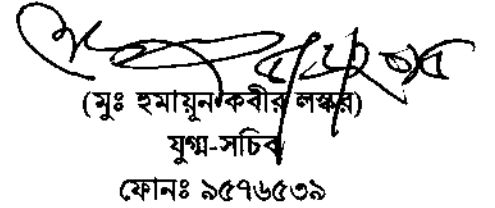 (মুঃ হুমায়ূন কবীর লস্কর)
যুগ্ম-সচিব
ফোনঃ ৯৫৭৬৫৩৯